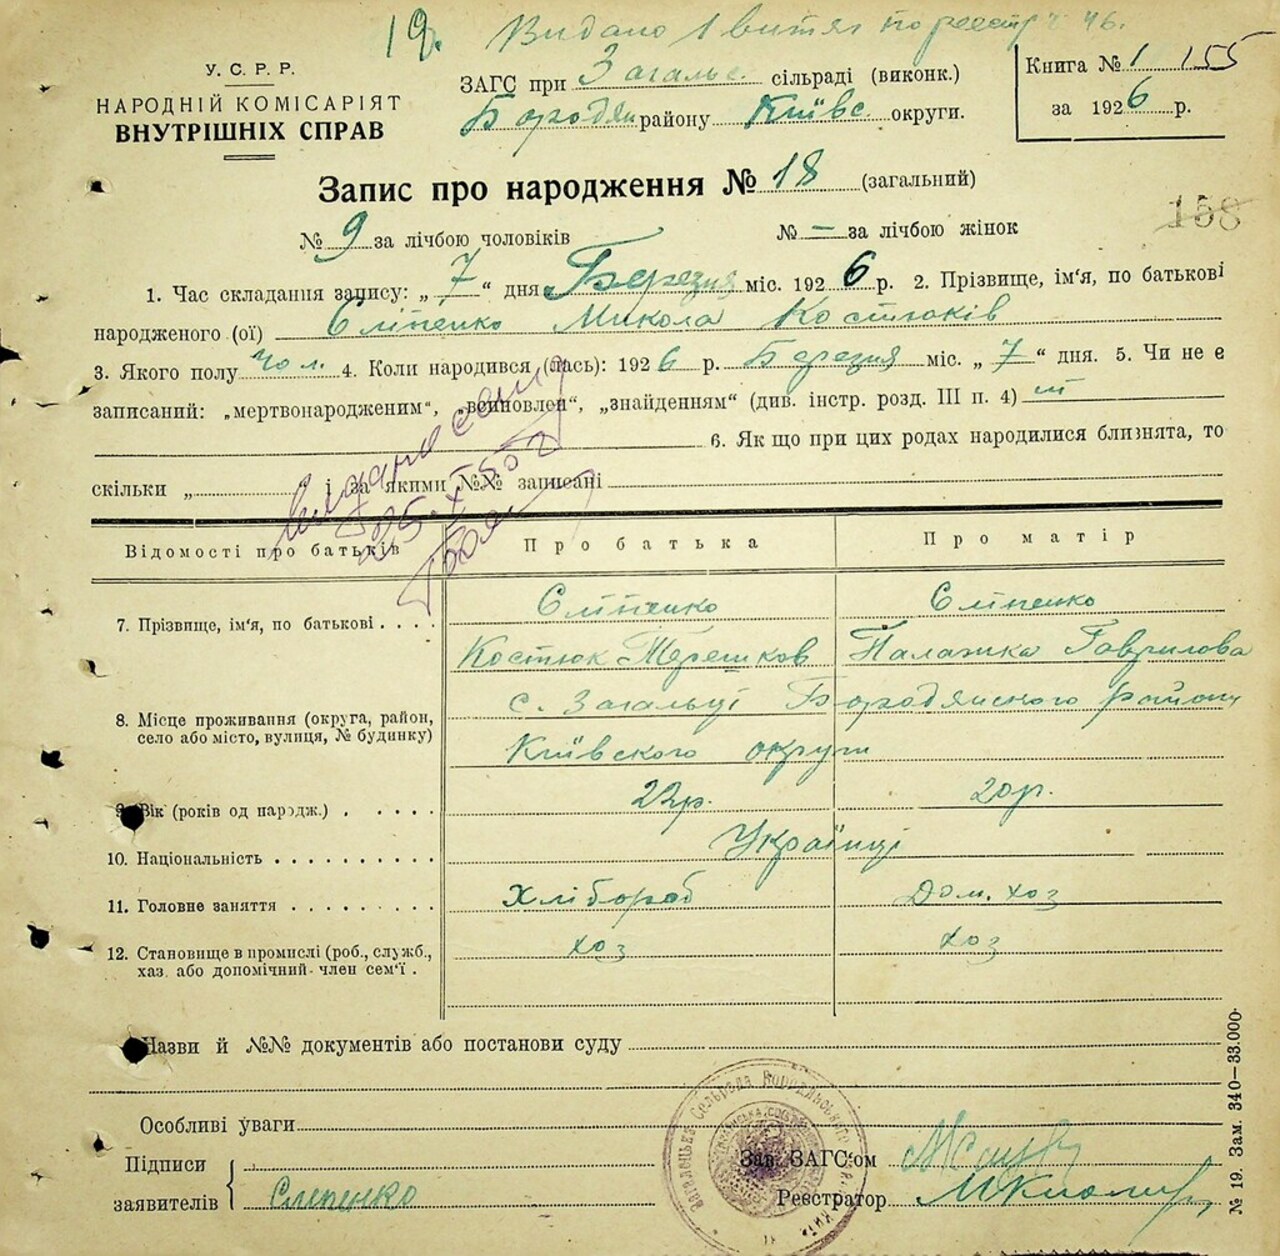 19. Видано 1 витяг по реестр
У. С. Р. Р.
НАРОДНІЙ КОМІСАРІЯТ
ВНУТРІШНІХ СПРАВ
ЗАГС при Загальс. сільраді (виконк.)
Бородян району Київс. округи.
Книга № 1 155
за 1926 р.
Запис про народження № 18 (загальний)
158
№ 9 за лічбою чоловіків № — за лічбою жінок
1. Час складання запису: „ 7 “ дня Березня міс. 1926 р. 2. Прізвище, ім'я, по батькові
народженого (ої) Єліпенко Микола Костюків
3. Якого полу чол. 4. Коли народився (лась): 1926 р. Березня міс. „ 7 “ дня. 5. Чи не є
записаний: „мертвонародженим“, „всиновлен“, „знайденням“ (див. інстр. розд. III п. 4) ні
6. Як що при цих родах народилися близнята, то
скільки „ “ і за якими №№ записані
25.X 50
Відомості про батьків Про батька Про матір
7. Прізвище, ім'я, по батькові . . . . Єліпенко Єліпенко
Костюк Терешков Палажка Гаврилова
8. Місце проживання (округа, район, село або місто, вулиця, № будинку) с. Загальці Бородянского району
Київского округи
9. Вік (років од народж.) . . . . . 22р. 20р.
10. Національність . . . . . . . . . . Українці
11. Головне заняття . . . . . . . . . Хлібороб Дом. хоз
12. Становище в промислі (роб., служб., хаз. або допомічний член сем'ї . хоз хоз
Назви й №№ документів або постанови суду
Особливі уваги
Підписи
заявителів Слепенко
Зав. ЗАГС'ом
Реєстратор
№ 19. Зам. 340—33.000·